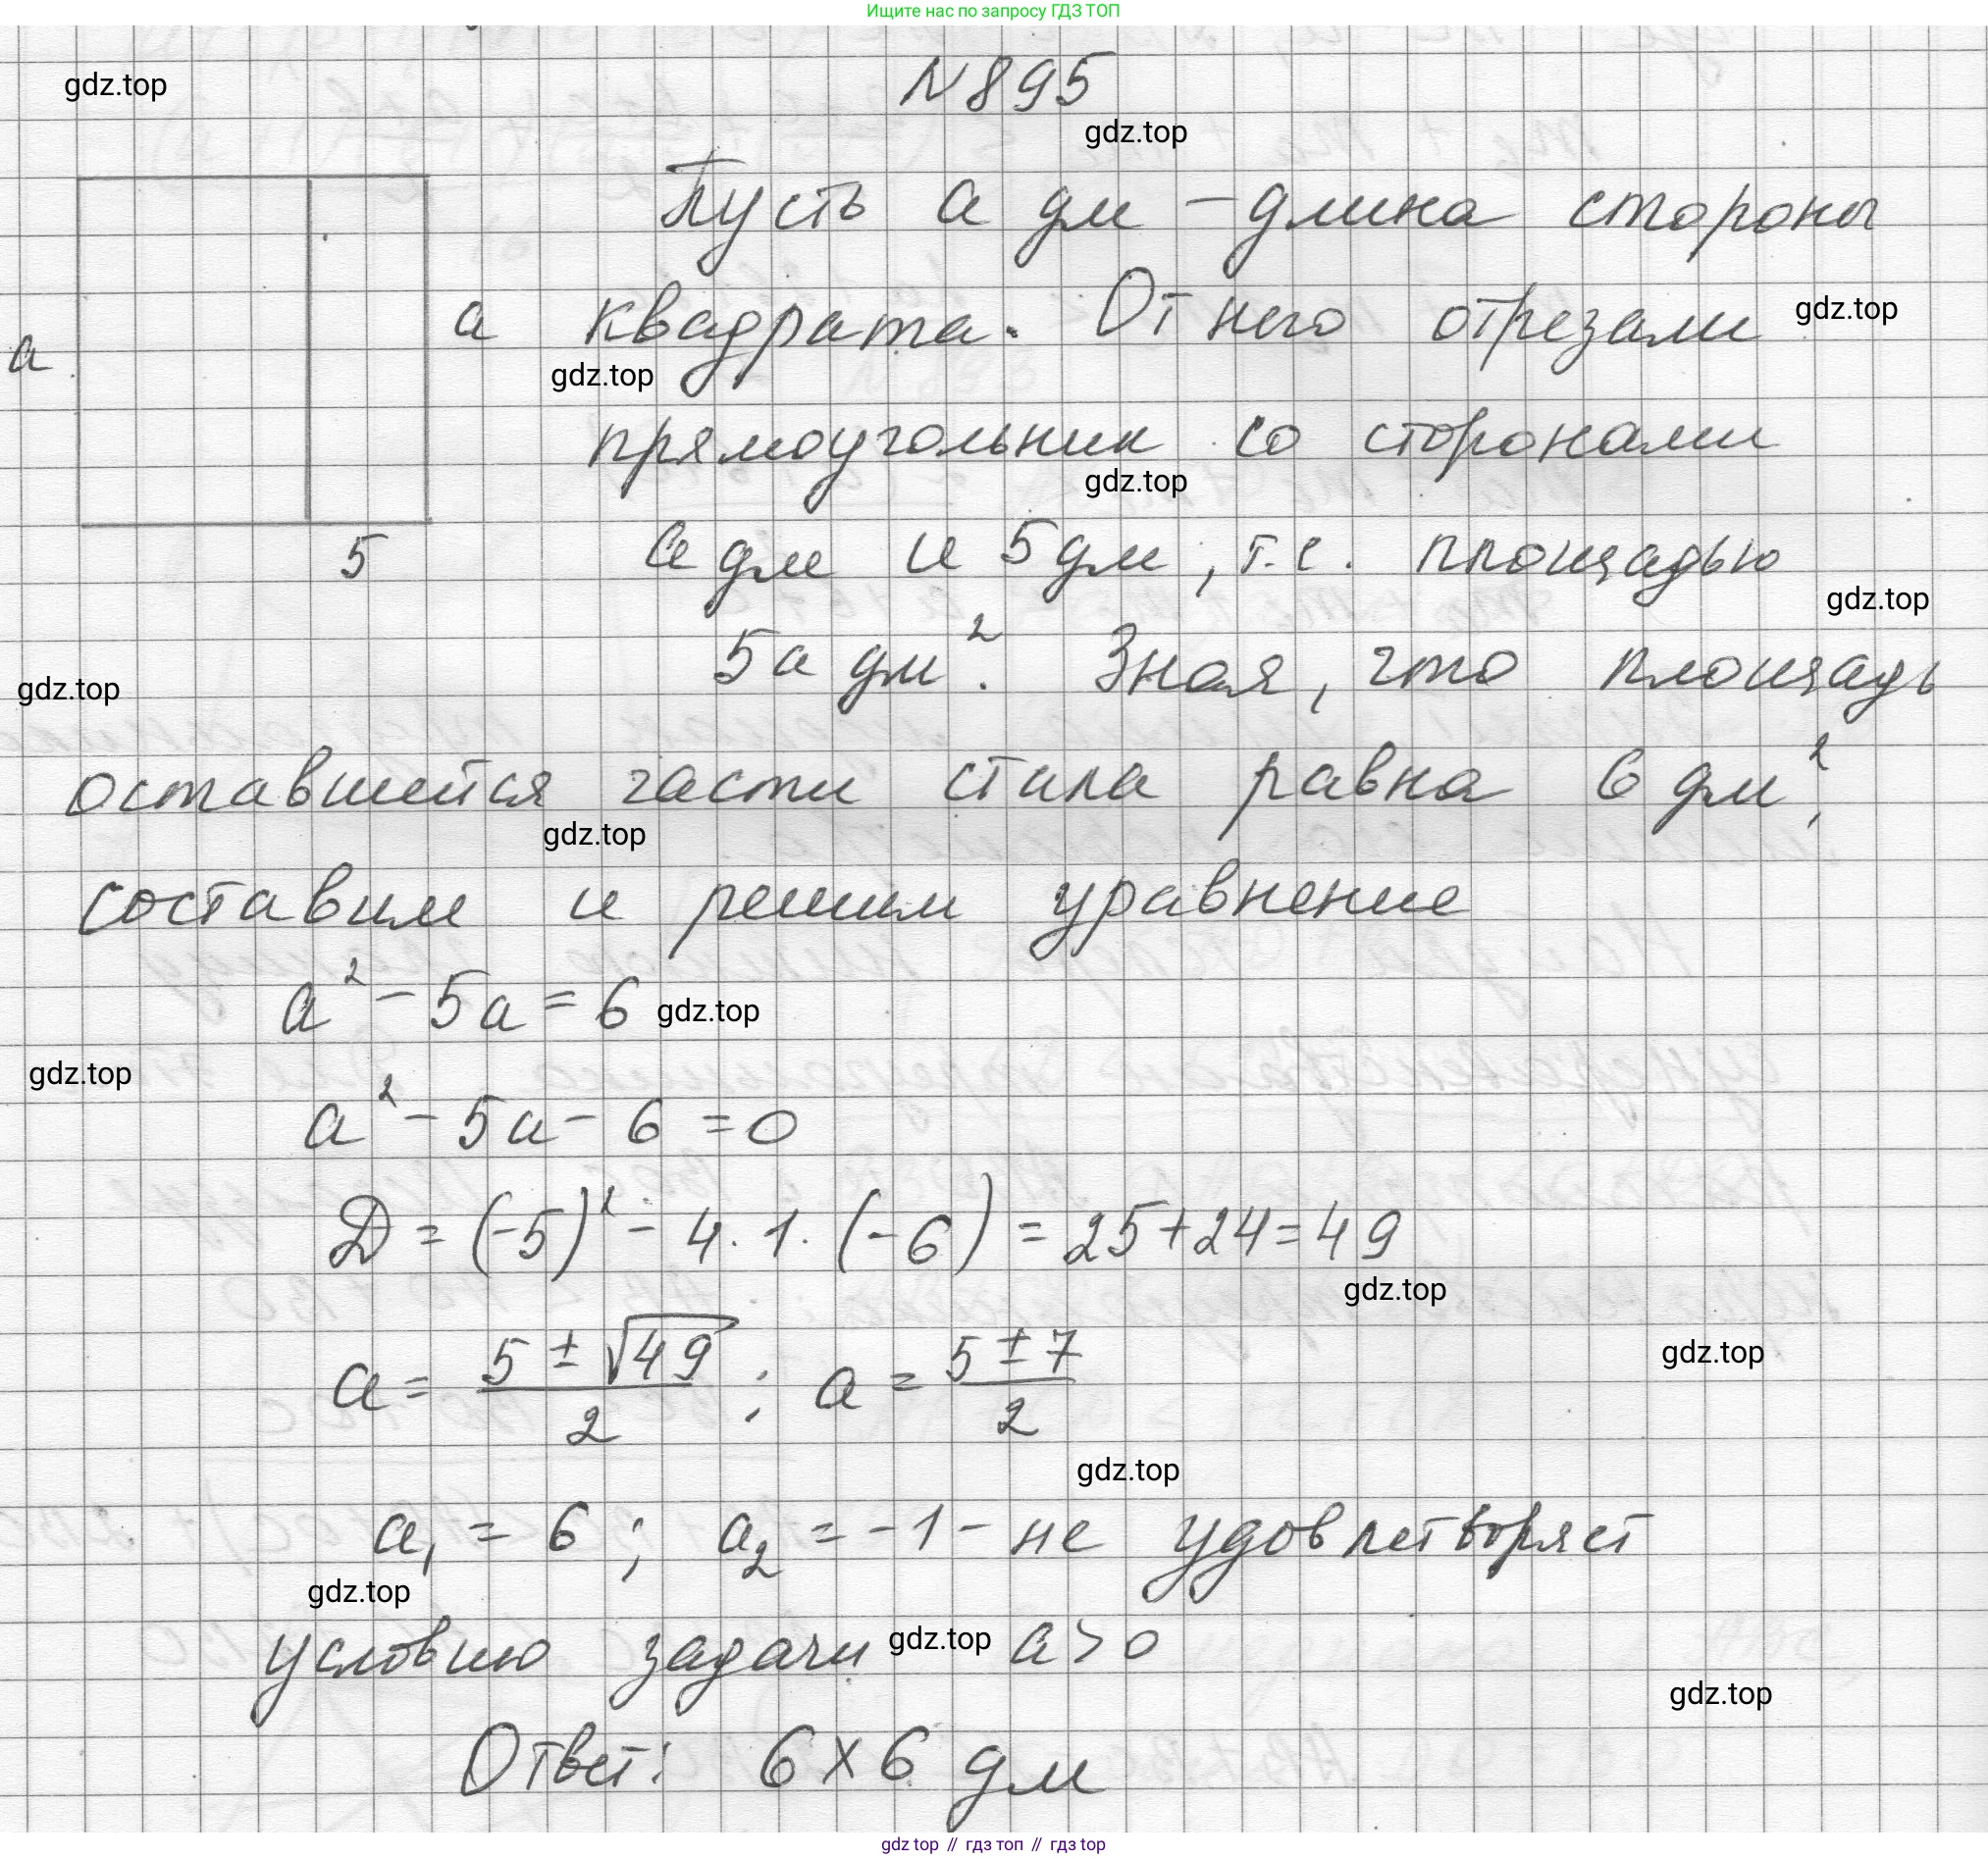 Ищите нас по запросу ГДЗ ТОП
N 895
gdz.top
gdz.top
Пусть а дм – длина стороны
а
а
квадрата. От него отрезали
gdz.top
gdz.top
прямоугольник со сторонами
gdz.top
5
а дм и 5 дм, т.е. площадью
gdz.top
5а дм². Зная, что площадь
gdz.top
оставшейся части стала равна 6 дм²,
gdz.top
составим и решим уравнение
a² – 5a = 6
gdz.top
gdz.top
a² – 5a – 6 = 0
Д = (-5)² – 4 · 1 · (-6) = 25 + 24 = 49
gdz.top
a = (5 ± √49)/2 ; a = (5 ± 7)/2
gdz.top
gdz.top
a₁ = 6 ; a₂ = -1 – не удовлетворяет
gdz.top
условию задачи a > 0
gdz.top
gdz.top
Ответ: 6 × 6 дм
gdz top // гдз топ // гдз top